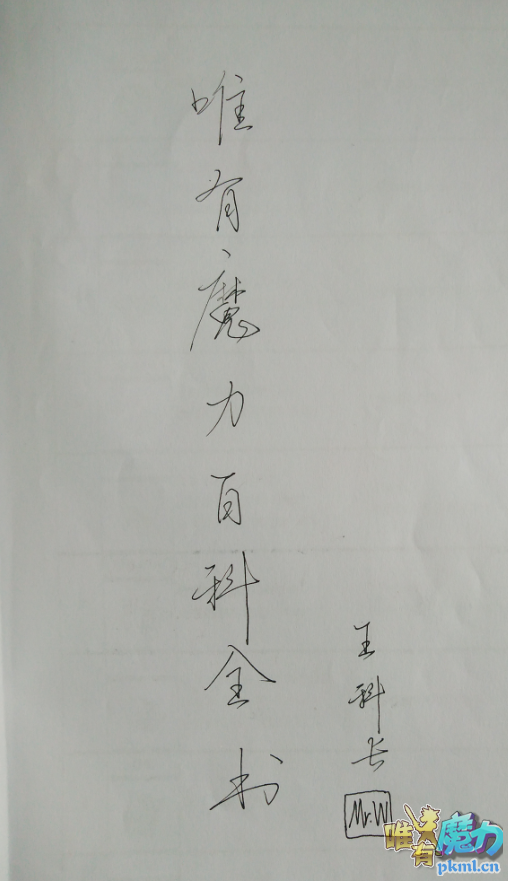 唯有魔力百科全书
王科长
Mr.W
唯有魔力
pkml.cn